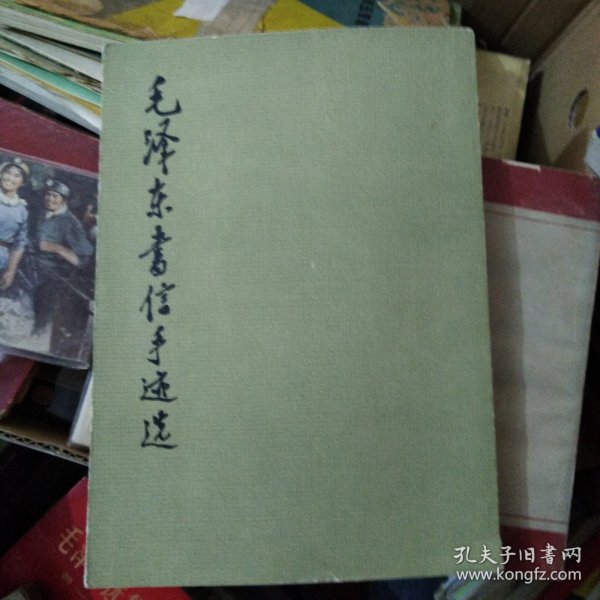 毛泽东书信手迹选
毛泽
孔夫子旧書网
www.kongfz.com